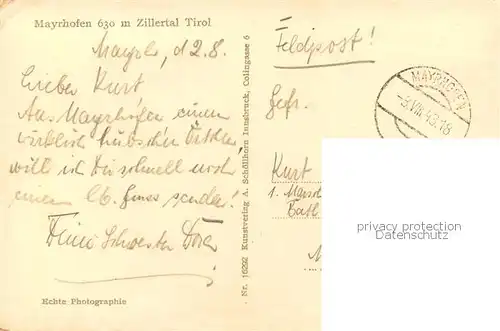 Mayrhofen 630 m Zillertal Tirol
Mayrh., d 2.8.
Lieber Kurt
Aus Mayrhofen einem
wirklich hübschen
will ich Dir schnell noch
einen lb. senden!
Deine Schwester Dora
Echte Photographie
Nr. 16292 Kunstverlag A. Schöllhorn Innsbruck, Colingasse 6
Feldpost!
MAYRHOFEN
Gefr.
Kurt
1. Marsch
Batl
privacy protection
Datenschutz